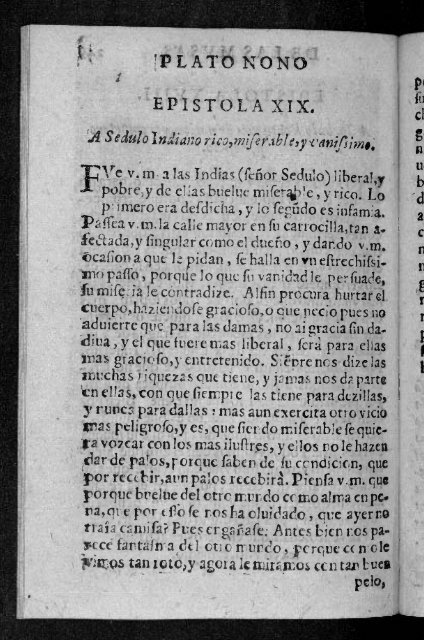 PLATO NONO
EPISTOLA XIX.
A Sedulo Indiano rico, miserable, y vanissimo.
FVe v.m. a las Indias (señor Sedulo) liberal, y
pobre, y de ellas buelue miserable, y rico. Lo
primero era desdicha, y lo segũdo es infamia.
Passea v.m. la calle mayor en su carrocilla, tan a-
fectada, y singular como el dueño, y dando v.m.
ocasion a que le pidan, se halla en vn estrechissi-
mo passo, porque lo que su vanidad le persuade,
su miseria le contradize. Alfin procura hurtar el
cuerpo, haziendose gracioso, o que necio pues no
aduierte que para las damas, no ai gracia sin da-
diua, y el que fuere mas liberal, será para ellas
mas gracioso, y entretenido. Siẽpre nos dize las
muchas riquezas que tiene, y jamas nos da parte
en ellas, con que siempre las tiene para dezillas,
y nunca para dallas: mas aun exercita otro vicio
mas peligroso, y es, que siendo miserable se quie-
ra vozear con los mas ilustres, y ellos no le hazen
dar de palos, porque saben de su condicion, que
por recebir, aun palos recebirà. Piensa v.m. que
porque buelue del otro mundo como alma en pe-
na, que por esso se nos ha oluidado, que ayer no
traìa camisa? Pues engañase. Antes bien nos pa-
rece fantasma del otro mundo, porque con ole
vimos tan roto, y agora le miramos con tan buen
pelo,